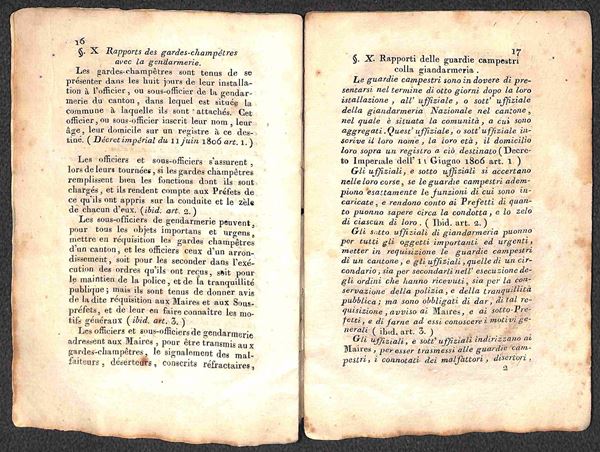 16
§. X Rapports des gardes-champêtres
avec la gendarmerie.
Les gardes-champêtres sont tenus de se
présenter dans les huit jours de leur installa-
tion à l'officier, ou sous-officier de la gendar-
merie du canton, dans lequel est située la
commune à laquelle ils sont attachés. Cet
officier, ou sous-officier inscrit leur nom, leur
âge, leur domicile sur un registre à ce des-
tiné. (Décret impérial du 11 juin 1806 art. 1.)
Les officiers et sous-officiers s'assurent,
lors de leurs tournées, si les gardes champêtres
remplissent bien les fonctions dont ils sont
chargés, et ils rendent compte aux Préfets de
ce qu'ils ont appris sur la conduite et le zèle
de chacun d'eux. (ibid. art. 2.)
Les sous-officiers de gendarmerie peuvent,
pour tous les objets importans et urgens,
mettre en réquisition les gardes champêtres
d'un canton, et les officiers ceux d'un arron-
dissement, soit pour les seconder dans l'exé-
cution des ordres qu'ils ont reçus, soit pour
le maintien de la police, et de la tranquillité
publique; mais ils sont tenus de donner avis
de la dite réquisition aux Maires et aux Sous-
préfets, et de leur en faire connaître les mo-
tifs généraux (ibid. art. 3.)
Les officiers et sous-officiers de gendarmerie
adressent aux Maires, pour être transmis aux
gardes-champêtres, le signalement des mal-
faiteurs, déserteurs, conscrits réfractaires,
17
§. X. Rapporti delle guardie campestri
colla giandarmeria.
Le guardie campestri sono in dovere di pre-
sentarsi nel termine di otto giorni dopo la loro
istallazione, all' uffiziale, o sott' uffiziale
della giandarmeria Nazionale nel cantone,
nel quale è situata la comunità, a cui sono
aggregati. Quest' uffiziale, o sott' uffiziale in-
scrive il loro nome, la loro età, il domicilio
loro sopra un registro a ciò destinato (Decre-
to Imperiale dell' 11 Giugno 1806 art. 1.)
Gli uffiziali, e sotto uffiziali si accertano
nelle loro corse, se le guardie campestri adem-
piono esattamente le funzioni di cui sono in-
caricate, e rendono conto ai Prefetti di quan-
to puonno sapere circa la condotta, e lo zelo
di ciascun di loro. (Ibid. art. 2.)
Gli sotto uffiziali di giandarmeria puonno
per tutti gli oggetti importanti ed urgenti,
metter in requisizione le guardie campestri
di un cantone, e gli uffiziali, quelle di un cir-
condario, sia per secondarli nell' esecuzione de-
gli ordini che hanno ricevuti, sia per la con-
servazione della polizia, e della tranquillità
pubblica; ma sono obbligati di dar, di tal re-
quisizione, avviso ai Maires, e ai sotto-Pre-
fetti, e di farne ad essi conoscere i motivi ge-
nerali (ibid. art. 3.)
Gli uffiziali, e sott' uffiziali indirizzano ai
Maires, per esser trasmessi alle guardie cam-
pestri, i connotati dei malfattori, disertori,
2